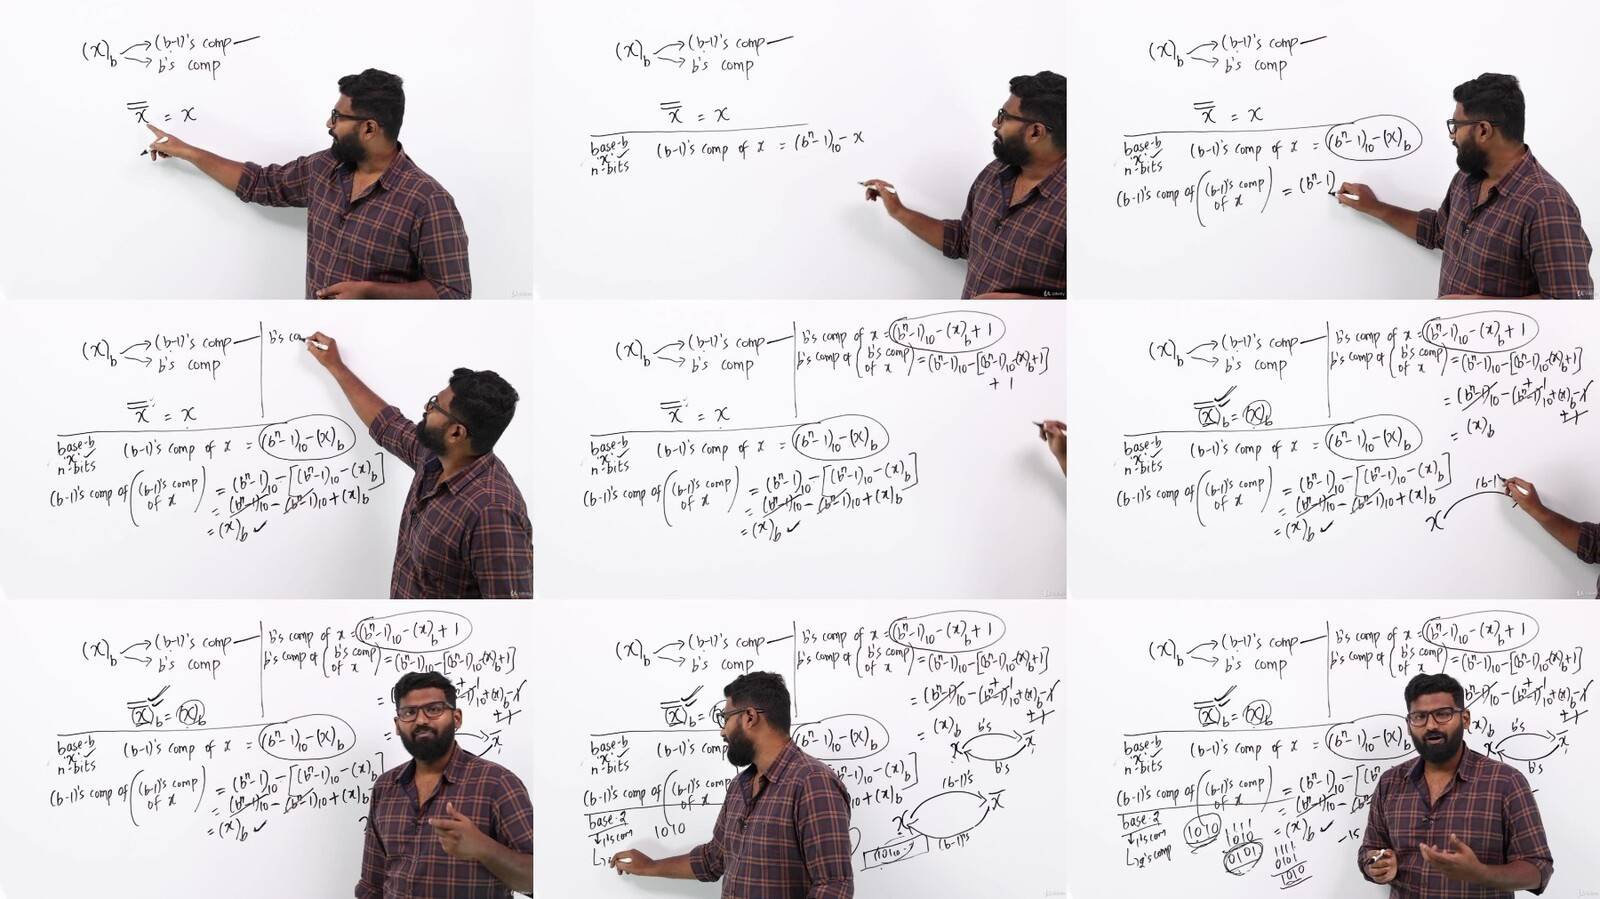 (x)b → (b-1)'s comp
→ b's comp
x̿ = x
(x)b → (b-1)'s comp
→ b's comp
x̿ = x
base-b
'x'
n-bits
(b-1)'s comp of x = (bⁿ-1)₁₀ - x
(x)b → (b-1)'s comp
→ b's comp
x̿ = x
base-b
'x'
n-bits
(b-1)'s comp of x = (bⁿ-1)₁₀ - (x)b
(b-1)'s comp of ((b-1)'s comp of x) = (bⁿ-1)
(x)b → (b-1)'s comp
→ b's comp
b's co
x̿ = x
base-b
'x'
n-bits
(b-1)'s comp of x = (bⁿ-1)₁₀ - (x)b
(b-1)'s comp of ((b-1)'s comp of x) = (bⁿ-1)₁₀ - [(bⁿ-1)₁₀ - (x)b]
= (bⁿ-1)₁₀ - (bⁿ-1)₁₀ + (x)b
= (x)b ✓
(x)b → (b-1)'s comp
→ b's comp
b's comp of x = (bⁿ-1)₁₀ - (x)b + 1
b's comp of {b's comp of x} = (bⁿ-1)₁₀ - [(bⁿ-1)₁₀ - (x)b + 1]
+ 1
x̿ = x
base-b
'x'
n-bits
(b-1)'s comp of x = (bⁿ-1)₁₀ - (x)b
(b-1)'s comp of ((b-1)'s comp of x) = (bⁿ-1)₁₀ - [(bⁿ-1)₁₀ - (x)b]
= (bⁿ-1)₁₀ - (bⁿ-1)₁₀ + (x)b
= (x)b ✓
(x)b → (b-1)'s comp
→ b's comp
b's comp of x = (bⁿ-1)₁₀ - (x)b + 1
b's comp of {b's comp of x} = (bⁿ-1)₁₀ - [(bⁿ-1)₁₀ - (x)b + 1]
+ 1
= (bⁿ-1)₁₀ - (bⁿ-1)₁₀ + (x)b - 1
+ 1
= (x)b
(x̿)b = (x)b
base-b
'x'
n-bits
(b-1)'s comp of x = (bⁿ-1)₁₀ - (x)b
(b-1)'s comp of ((b-1)'s comp of x) = (bⁿ-1)₁₀ - [(bⁿ-1)₁₀ - (x)b]
= (bⁿ-1)₁₀ - (bⁿ-1)₁₀ + (x)b
= (x)b ✓
x
(b-1)'
(x)b → (b-1)'s comp
→ b's comp
b's comp of x = (bⁿ-1)₁₀ - (x)b + 1
b's comp of {b's comp of x} = (bⁿ-1)₁₀ - [(bⁿ-1)₁₀ - (x)b + 1]
(x̿)b = (x)b
base-b
'x'
n-bits
(b-1)'s comp of x = (bⁿ-1)₁₀ - (x)b
(b-1)'s comp of ((b-1)'s comp of x) = (bⁿ-1)₁₀ - [(bⁿ-1)₁₀ - (x)b
= (bⁿ-1)₁₀ - (bⁿ-1)₁₀ + (x)b
= (x)b ✓
x̄
(x)b → (b-1)'s comp
→ b's comp
b's comp of x = (bⁿ-1)₁₀ - (x)b + 1
b's comp of {b's comp of x} = (bⁿ-1)₁₀ - [(bⁿ-1)₁₀ - (x)b + 1]
= (bⁿ-1)₁₀ - (bⁿ-1)₁₀ + (x)b - 1
+ 1
= (x)b
(x̿)b =
base-b
'x'
n-bits
(b-1)'s comp
(bⁿ-1)₁₀ - (x)b
(b-1)'s comp of ((b-1)'s comp of x)
₁₀ + (x)b
x b's x̄
b's
x (b-1)'s x̄
(b-1)'s
base-2
1's com
1010
(x)b → (b-1)'s comp
→ b's comp
b's comp of x = (bⁿ-1)₁₀ - (x)b + 1
b's comp of {b's comp of x} = (bⁿ-1)₁₀ - [(bⁿ-1)₁₀ - (x)b + 1]
+ 1
(x̿)b = (x)b
base-b
'x'
n-bits
(b-1)'s comp of x = (bⁿ-1)₁₀ - (x)b
(b-1)'s comp of ((b-1)'s comp of x) = (bⁿ-1)₁₀ - [(bⁿ
= (bⁿ-1)₁₀ -
= (x)b ✓
x b's x̄
b's
base-2
1's com
2's comp
1010
1111
1010
0101
1111
0101
1010